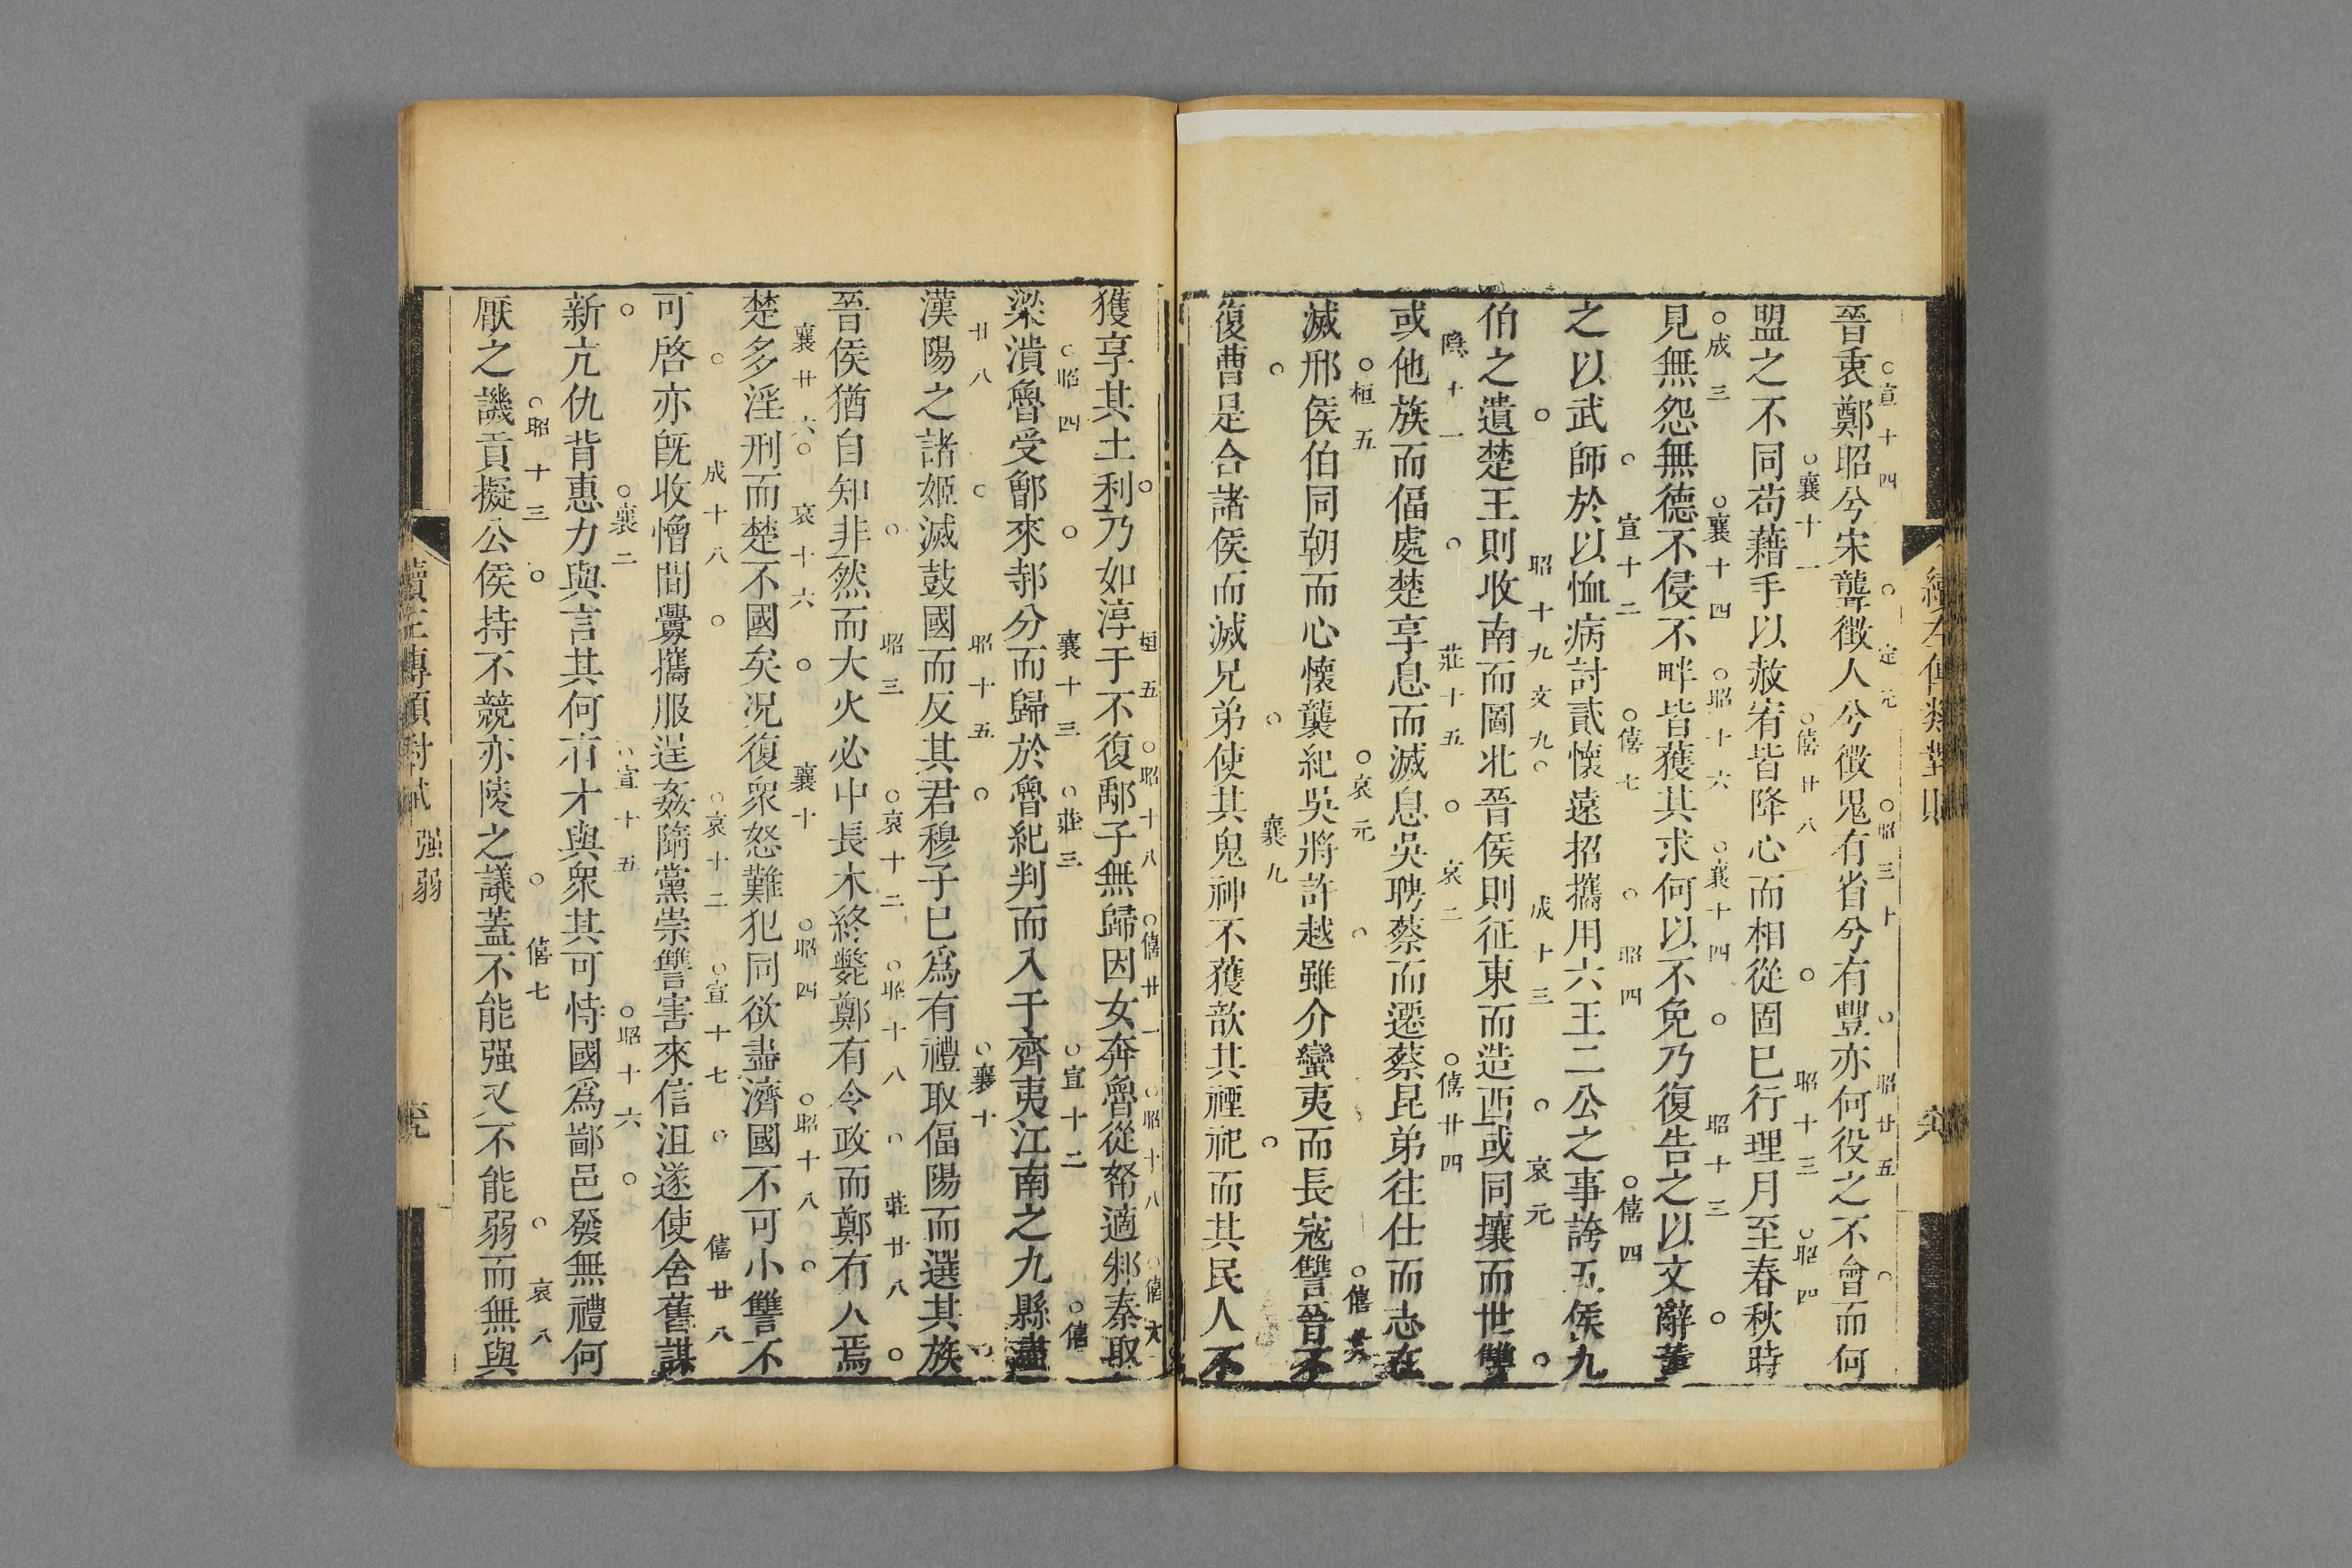 宣十四 定元 昭三十 昭廿五
晉衷鄭昭兮宋聾徵人兮徵鬼有省兮有豐亦何役之不會而何
襄十一 僖廿八 昭十三 昭四
盟之不同苟藉手以赦宥皆降心而相從固巳行理月至春秋時
成三 襄十四 昭十六 襄十四 昭十三
見無怨無德不侵不畔皆獲其求何以不免乃復告之以文辭董
宣十二 僖七 昭四 僖四
之以武師於以恤病討貳懷遠招攜用六王二公之事誇五侯九
昭十九 文九 成十三 哀元
伯之遺楚王則收南而圖北晉侯則征東而造西或同壤而世讐
隱十一 莊十五 哀二 僖廿四
或他族而偪處楚享息而滅息吳聘蔡而遷蔡昆弟往仕而志在
桓五 哀元 僖
滅邢侯伯同朝而心懷襲紀吳將許越雖介蠻夷而長寇讐晉不
襄九
復曹是合諸侯而滅兄弟使其鬼神不獲歆其禋祀而其民人不
續左傳類對賦
桓五 昭十八 僖廿一 昭十八 僖
獲享其土利乃如淳于不復鄅子無歸因女奔魯從帑適邾秦取
昭四 襄十三 莊三 宣十二 僖
梁潰魯受鄫來邿分而歸於魯紀判而入于齊夷江南之九縣盡
廿八 昭十五 襄十
漢陽之諸姬滅鼓國而反其君穆子巳爲有禮取偪陽而選其族
昭三 哀十二 昭十八 莊廿八
晉侯猶自知非然而大火必中長木終斃鄭有令政而鄭有人焉
襄廿六 哀十六 襄十 昭四 昭十八
楚多淫刑而楚不國矣况復衆怒難犯同欲盡濟國不可小讐不
成十八 哀十二 宣十七 僖廿八
可啓亦旣收憎間釁攜服逞姦隋黨崇讐害來信沮遂使舍舊謀
襄二 宣十五 昭十六
新亢仇背惠力與言其何有才與衆其可恃國爲鄙邑發無禮何
昭十三 僖七 哀八
厭之譏貢擬公侯持不競亦陵之議蓋不能强又不能弱而無與
續左傳類對賦 强弱